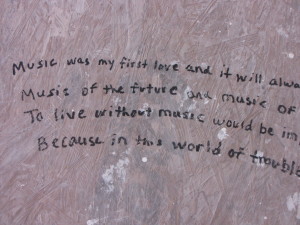 Music was my first love and it will alwa
Music of the future and music of
To live without music would be im
Because in this world of trouble